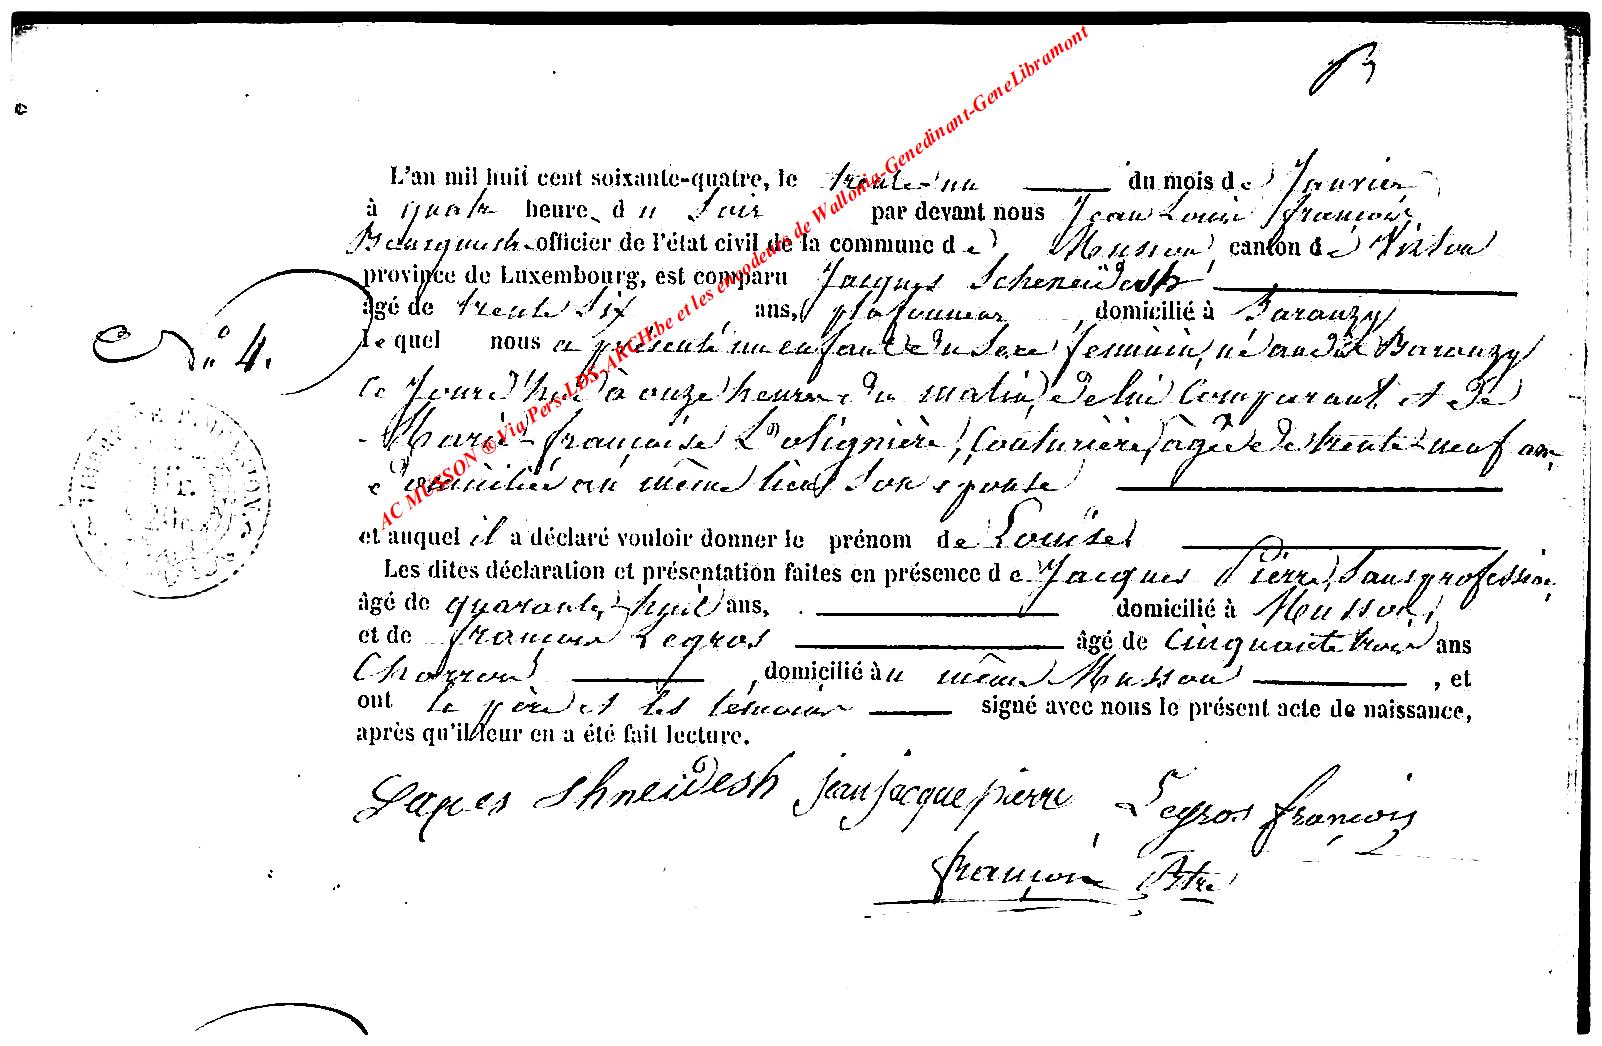 L'an mil huit cent soixante-quatre, le trente un du mois de Janvier
à quatre heures du Soir par devant nous Jean Louis françois
officier de l'état civil de la commune de Musson, canton de Virton
province de Luxembourg, est comparu Jacques Scheneïdesh
âgé de trente Six ans, plafonneur, domicilié à Baranzy
le quel nous a présenté un enfant du Sexe féminin, né audit Baranzy
ce Jourd'hui à onze heures du matin, de lui Comparant et de
Marie-françoise Lolignière, Couturière, âgée de trente-neuf ans
domiciliée au même lieu Son épouse
et auquel il a déclaré vouloir donner le prénom de Louise
Les dites déclaration et présentation faites en présence de Jacques Pierre, Sans profession,
âgé de quarante-huit ans, domicilié à Musson,
et de françois Legros âgé de Cinquante trois ans
Charron, domicilié au même Musson, et
ont le père et les témoins signé avec nous le présent acte de naissance,
après qu'il leur en a été fait lecture.
N° 4.
Jaques Shneidesh jean jacque pierre Legros françois
françois
AC MUSSON ® Via Pers-LDS-ARCH.be et les encodeurs de Wallonia-Genedinant-GeneLibramont